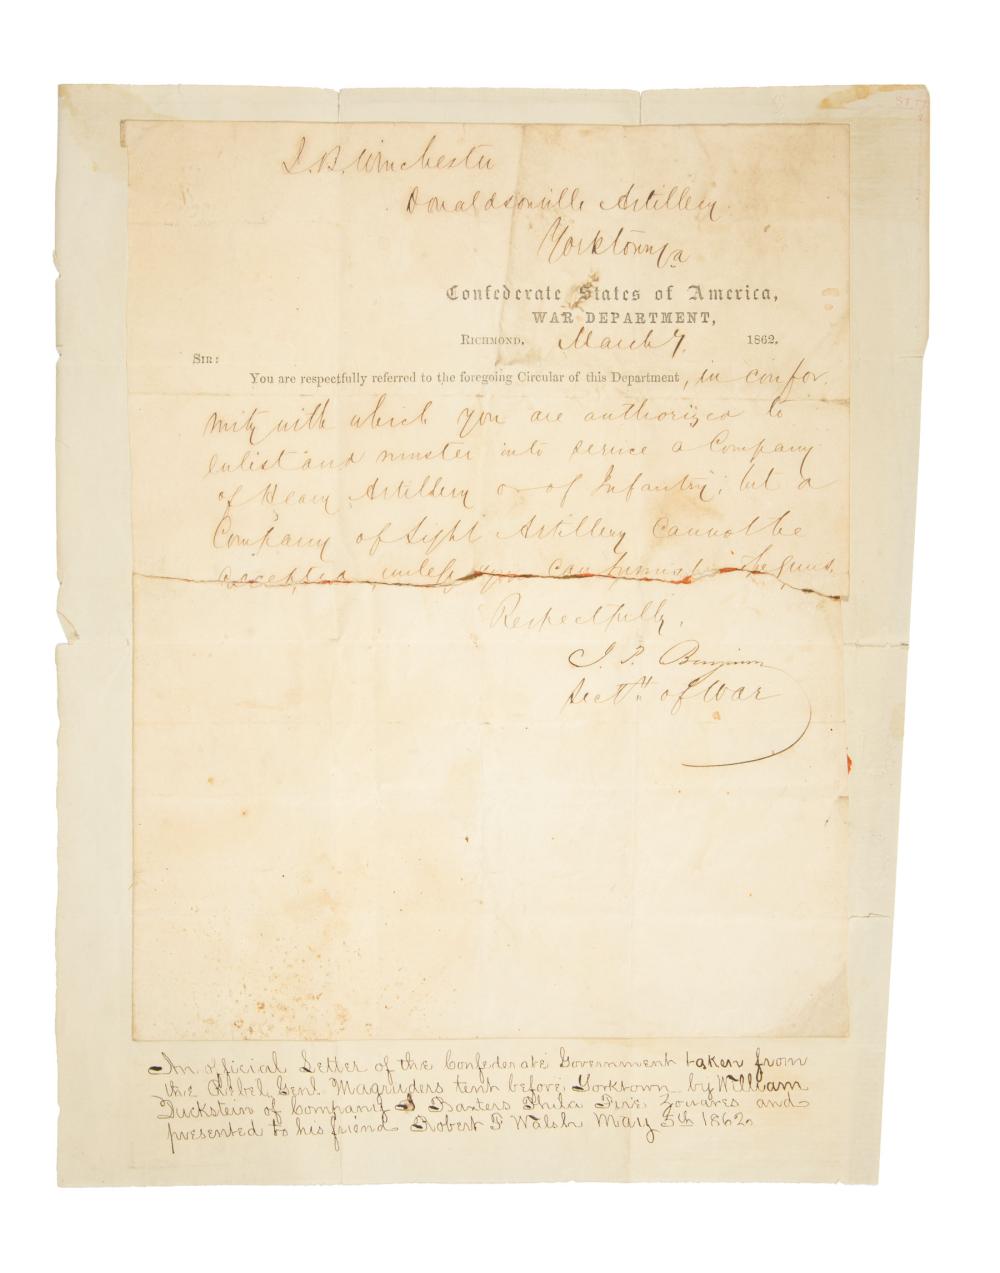 J. B. Winchester
Donaldsonville Artillery
Yorktown Va
Confederate States of America,
WAR DEPARTMENT,
RICHMOND, March 7. 1862.
SIR:
You are respectfully referred to the foregoing Circular of this Department, in confor.
mity with which you are authorized to
enlist and muster into service a Company
of Heavy Artillery or of Infantry; but a
Company of Light Artillery cannot be
accepted, unless you can furnish the guns.
Respectfully,
J. P. Benjamin
Secty of War
An official Letter of the Confederate Government taken from
the Rebel Genl. Magruders tent before Yorktown by William
Duckstein of Company I Baxters Phila Fire Zouaves and
presented to his friend Robert P Walsh May 5th 1862